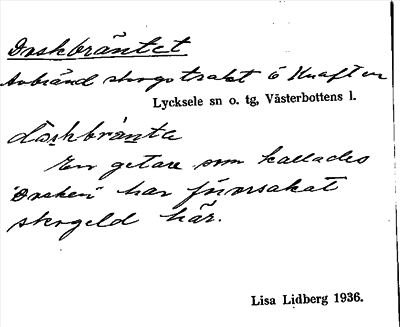 Doskbräntet
Avbränd skogstrakt ö Knaften
Lycksele sn o. tg, Västerbottens l.
dɷskbrànta
En getare som kallades
"Dosken" har förorsakat
skogeld här.
Lisa Lidberg 1936.